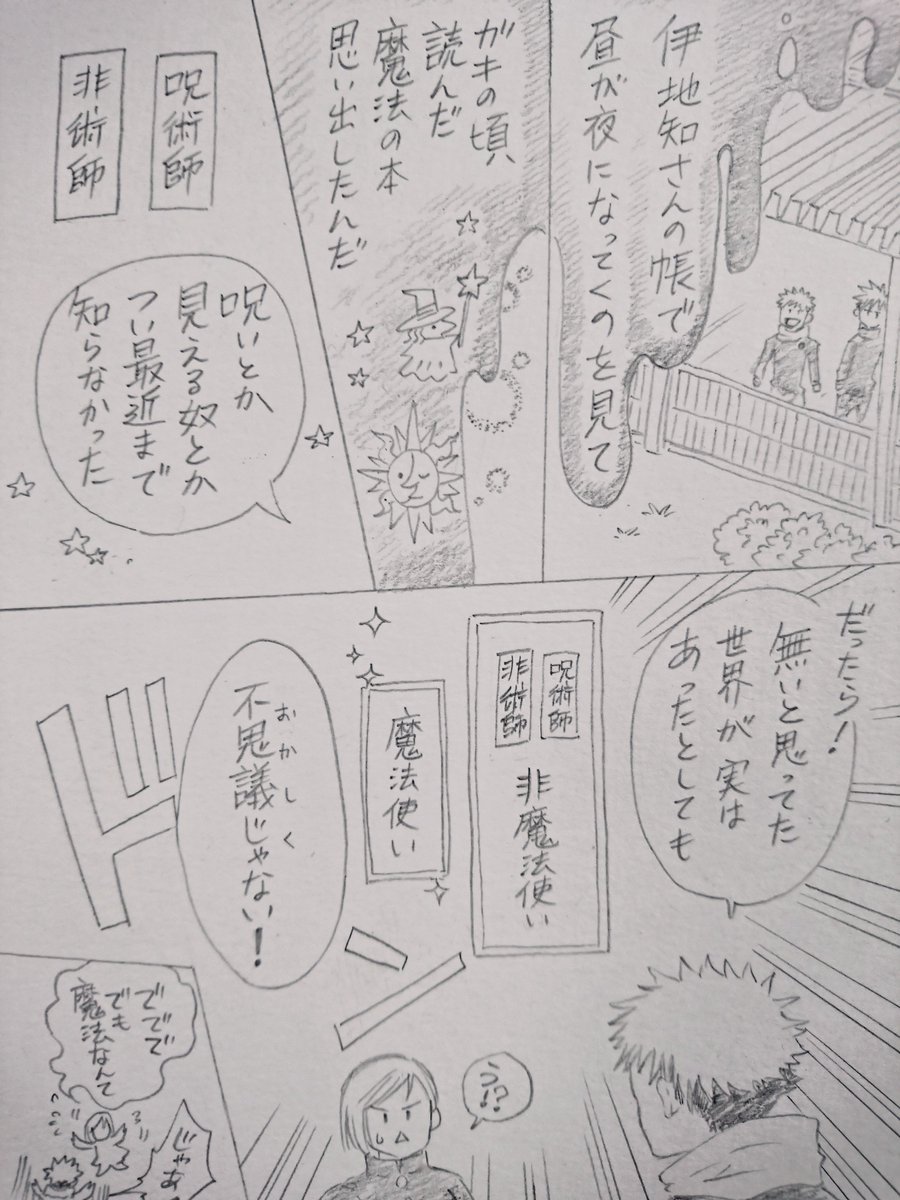 伊地知さんの帳で
昼が夜になってくのを見て
ガキの頃
読んだ
魔法の本
思い出したんだ
呪術師
非術師
呪いとか
見える奴とか
つい最近まで
知らなかった
だったら！
無いと思ってた
世界が実は
あったとしても
呪術師
非術師
非魔法使い
魔法使い
不思議じゃない！
おかしく
ドーン
う!?
ででで
でも
魔法なんて
じゃあ